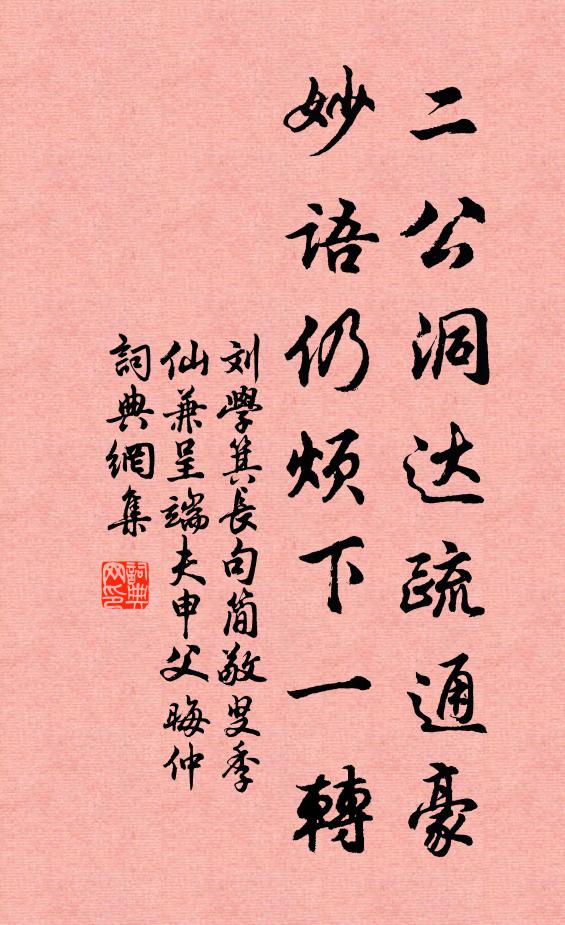 二公洞达疏通豪
妙语仍烦下一轉
刘學箕長句简敬叟季
仙兼呈端夫申父晦仲
詞典網集
詞典网印